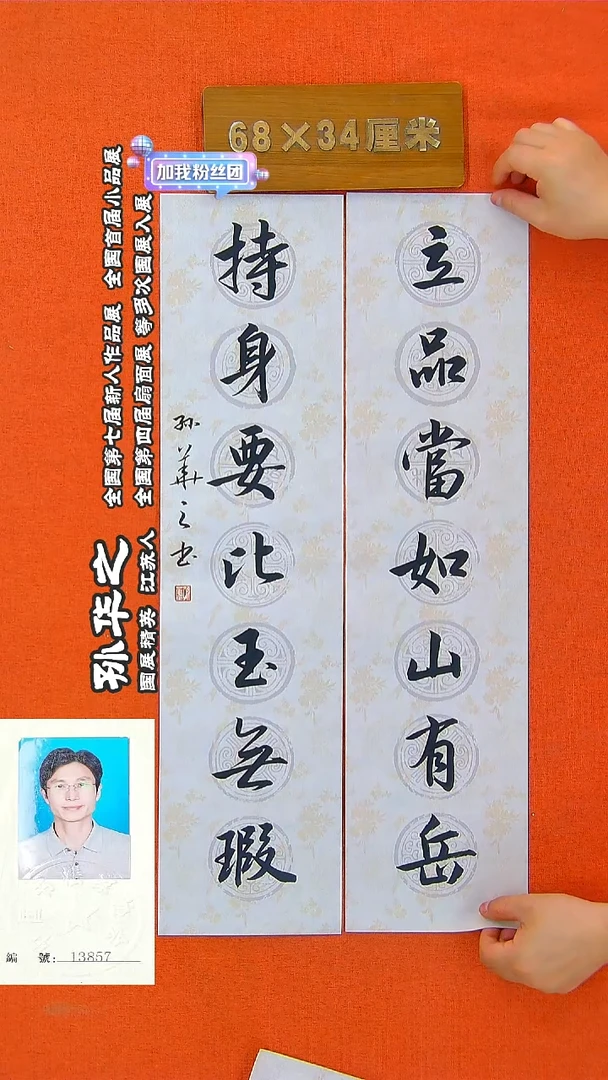 68×34厘米
加我粉丝团
立品當如山有岳
持身要比玉無瑕
孙華之书
孙华之
国展精英 江苏人
全国第七届新人作品展 全国首届小品展
全国第四届扇面展 等多次国展入展
編 號: 13857